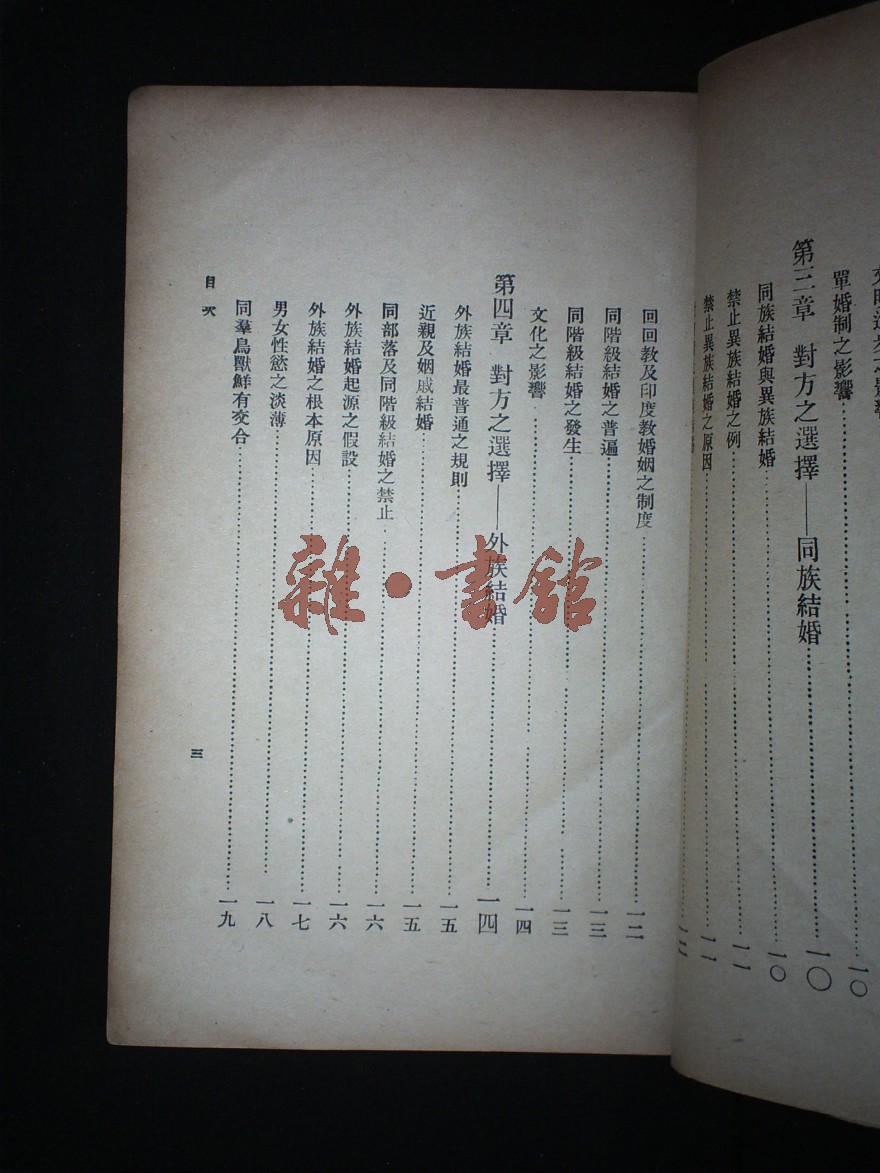 單婚制之影響……一〇
第三章 對方之選擇——同族結婚……一〇
同族結婚與異族結婚……一〇
禁止異族結婚之例……一一
禁止異族結婚之原因……一一
回回教及印度教婚姻之制度……一二
同階級結婚之普遍……一三
同階級結婚之發生……一三
文化之影響……一四
第四章 對方之選擇——外族結婚……一四
外族結婚最普通之規則……一五
近親及姻戚結婚……一五
同部落及同階級結婚之禁止……一六
外族結婚起源之假設……一六
外族結婚之根本原因……一七
男女性慾之淡薄……一八
同羣鳥獸鮮有交合……一九
目次
三
雜·書館